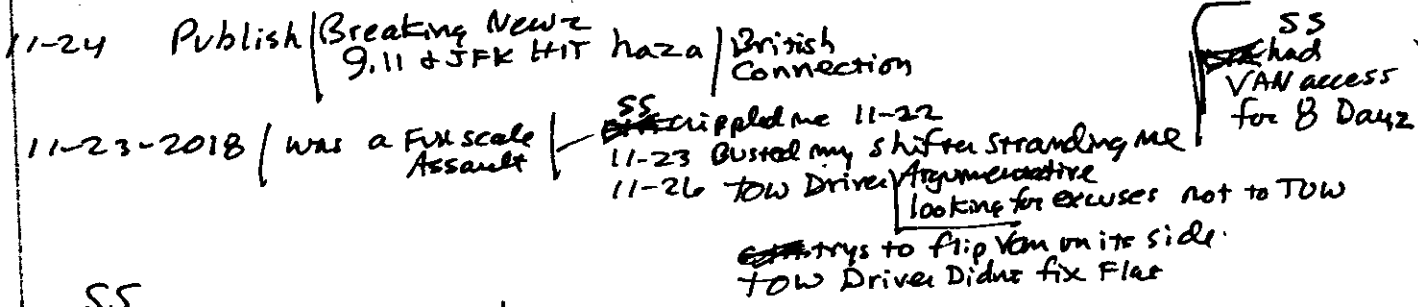 11-24 Publish Breaking Newz
9.11 & JFK HIT haza British
Connection
SS
had
VAN access
for 8 Dayz
11-23-2018 was a Full scale
Assault
SS
crippled me 11-22
11-23 Busted my shifter stranding me
11-26 TOW Driver Argumentative
looking for excuses not to TOW
trys to flip Van on its side.
TOW Driver Didnt fix Flat
SS